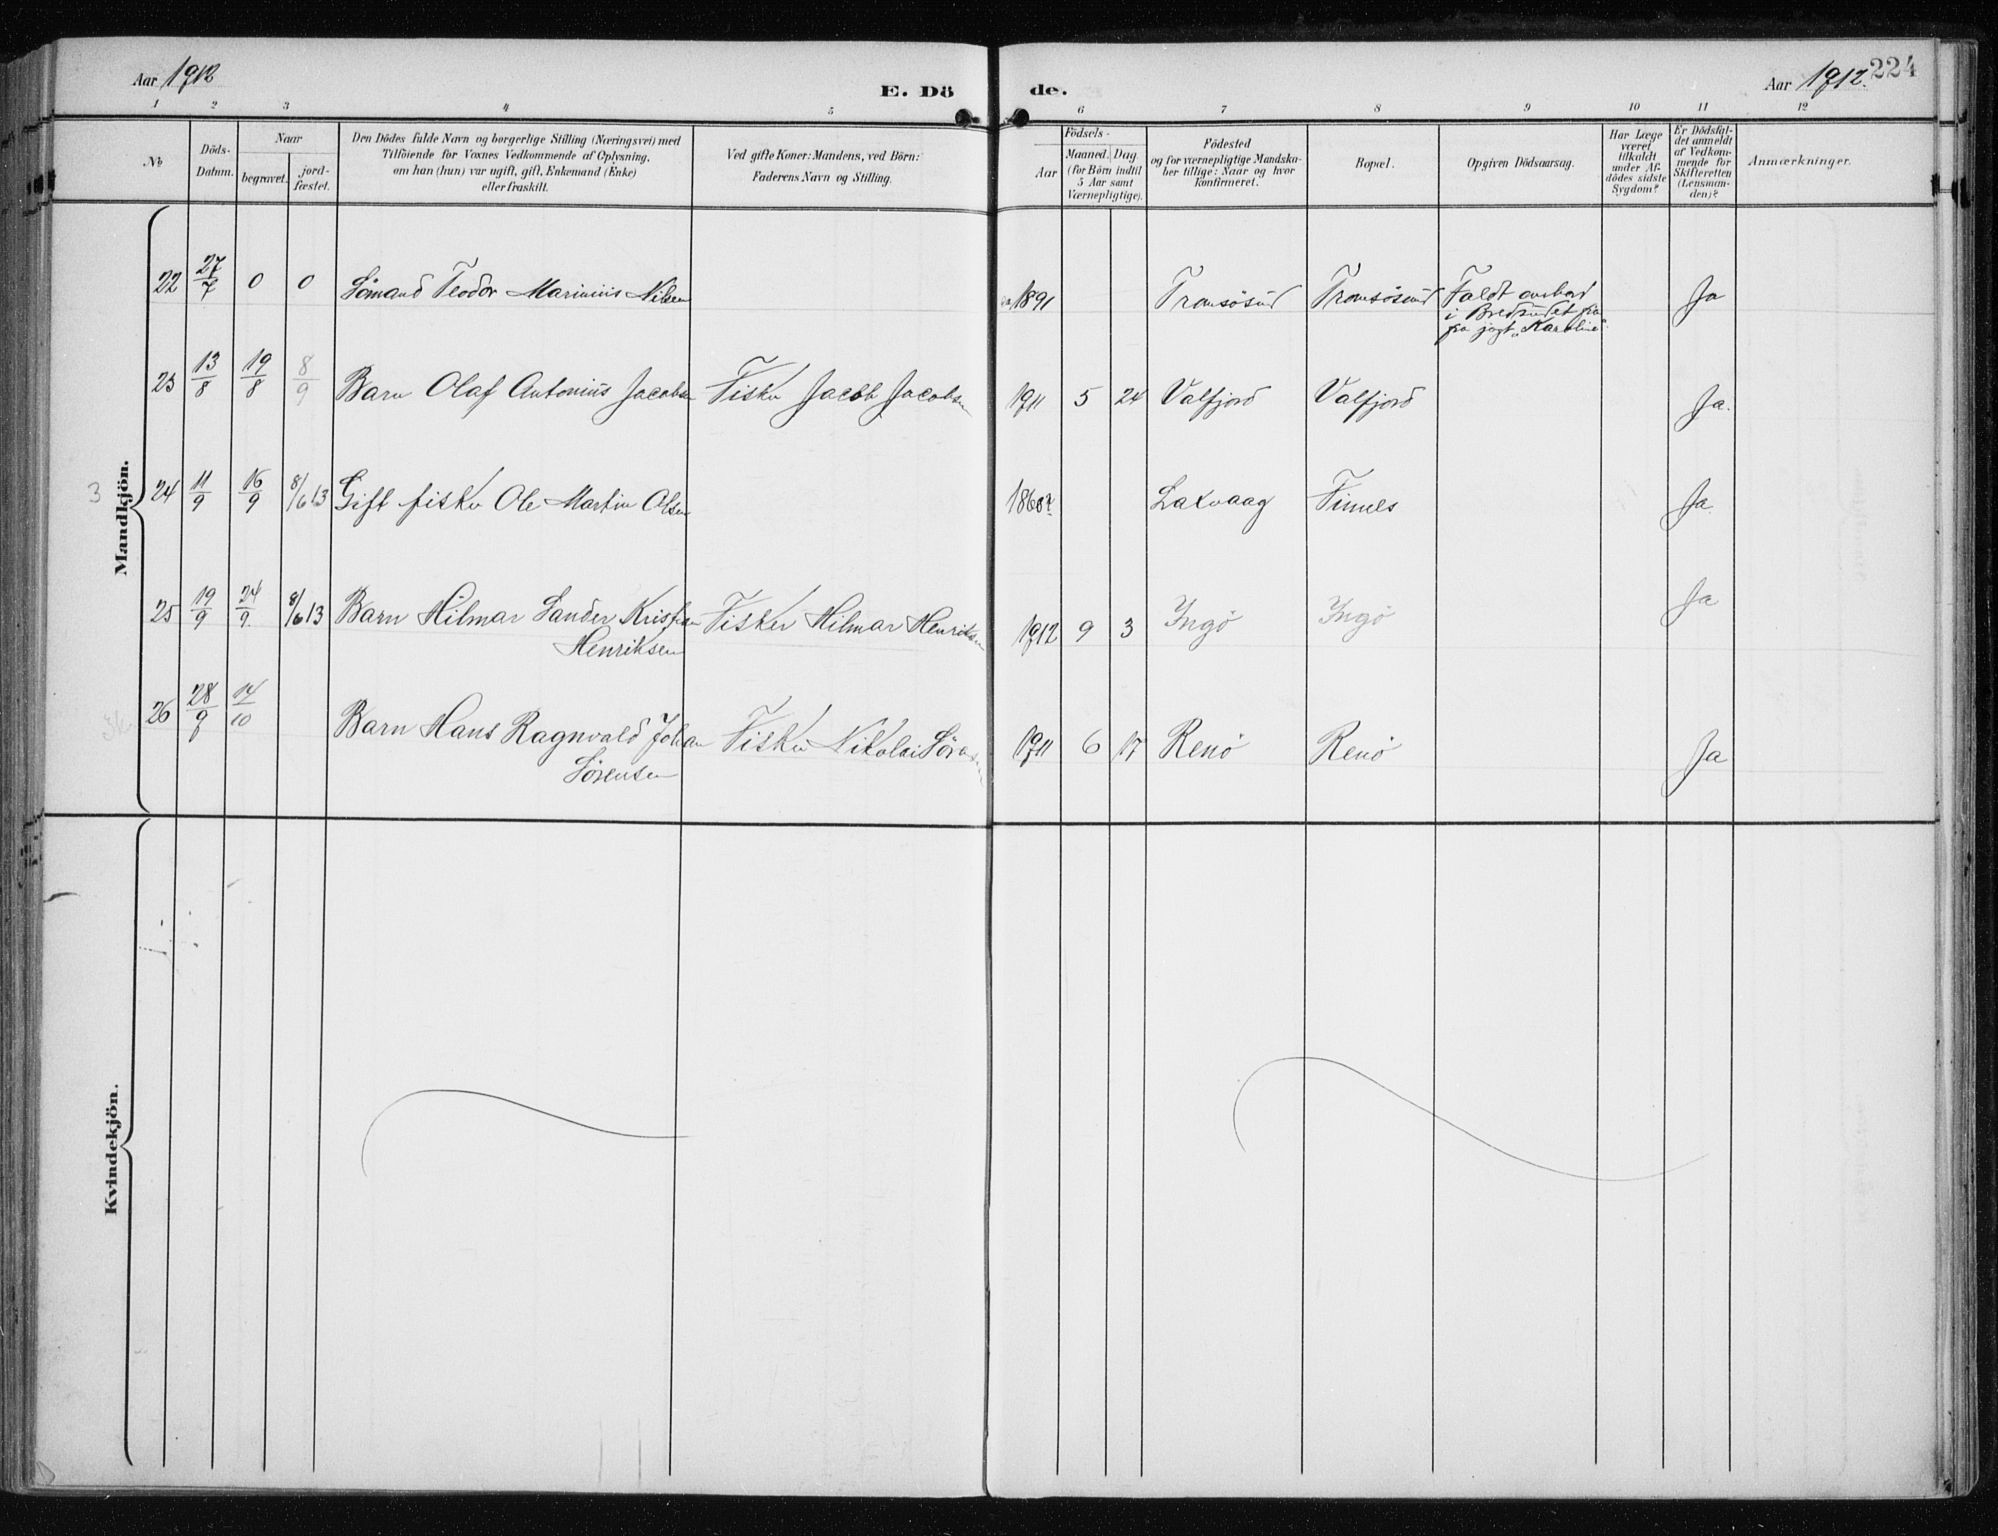 Aar 1912
E. Dö
de.
Aar 1912.
224
1 2 3 4 5 6 7 8 9 10 11 12
No
Döds-
Datum.
Naar
begravet.
jord-
fæstet.
Den Dödes fulde Navn og borgerlige Stilling (Næringsvei) med
Tilföiende for Voxnes Vedkommende af Oplysning,
om han (hun) var ugift, gift, Enkemand (Enke)
eller fraskilt.
Ved gifte Koner: Mandens, ved Börn:
Faderens Navn og Stilling.
Födsels-
Aar
Maaned. Dag
(for Börn indtil
5 Aar samt
Værnepligtige).
Födested
og for værnepligtige Mandska-
ber tillige: Naar og hvor
konfirmeret.
Bopæl.
Opgiven Dödsaarsag.
Har Læge
været
tilkaldt
under Af-
dödes sidste
Sygdom?
Er Dödsfal-
det anmeldt
af Vedkom-
mende for
Skifteretten
(Lensman-
den)?
Anmærkninger.
Mandkjön.
22 27/7 0 0 Sömand Teodor Marinius Nilsen 1891 Tromsösund Tromsösund Faldt overbord
i Bredsundet fra
fra jagt „Karoline“
Ja
23 13/8 19/8 8/9 Barn Olaf Antonius Jacobsen Fisker Jacob Jacobsen 1911 5 24 Valfjord Valfjord Ja.
3
24 11/9 16/9 8/6 13 Gift fisker Ole Martin Olsen 1860? Laxvaag Finnes Ja.
25 19/9 24/9 8/6 13 Barn Hilmar Sander Kristian
Henriksen
Fisker Hilmar Henriksen 1912 9 3 Ingö Ingö Ja
26 28/9 14/10 Barn Hans Ragnvald Johan
Sörensen
Fisker Nikolai Sörensen 1911 6 17 Renö Renö Ja
Kvindekjön.